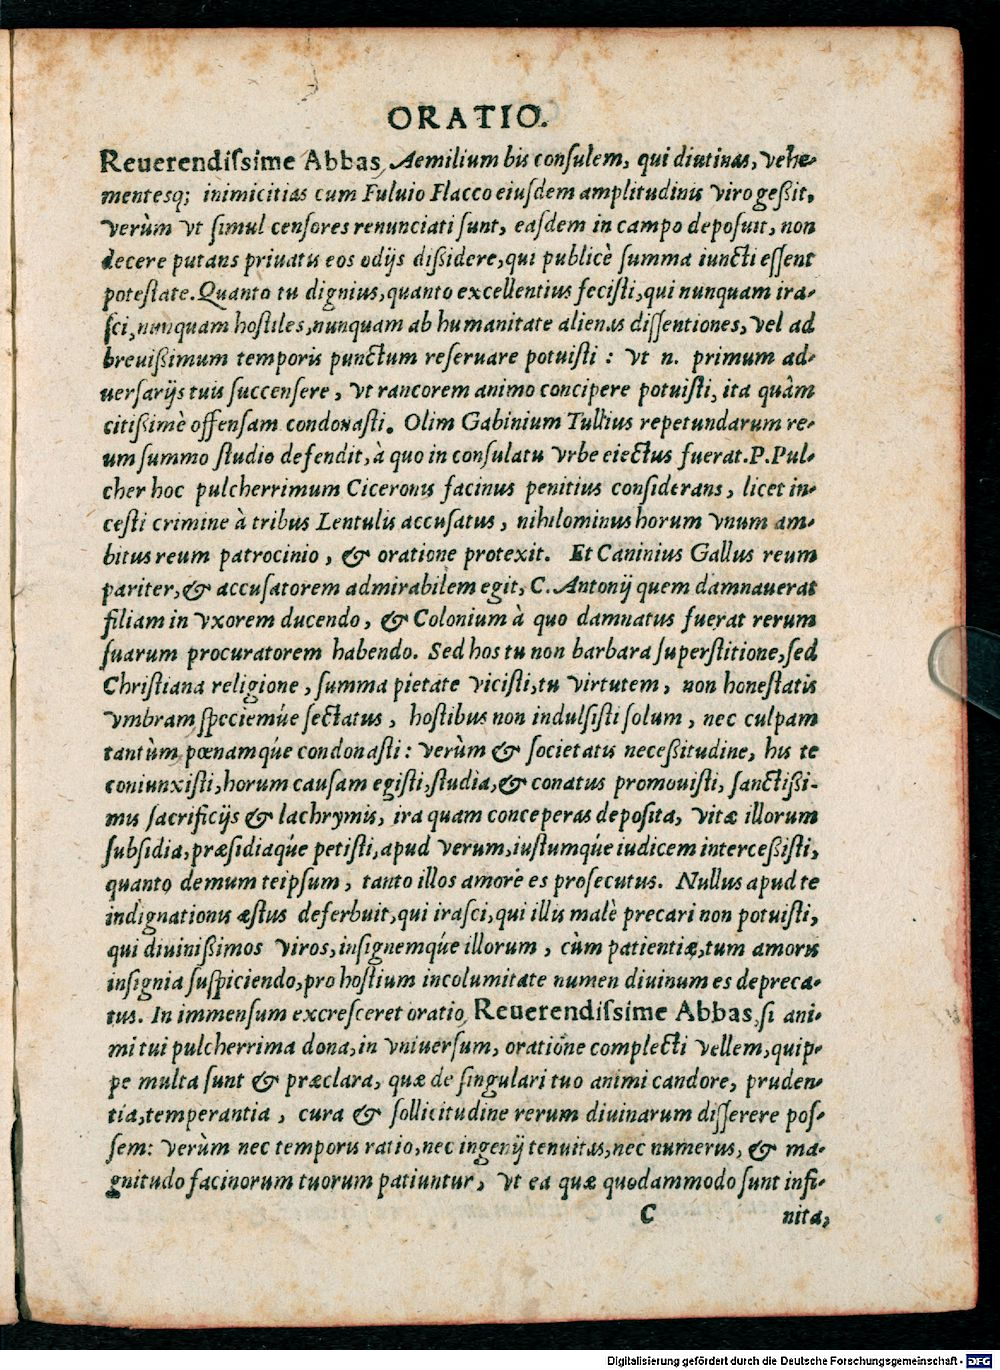 ORATIO.
Reuerendiſsime Abbas, Aemilium bis conſulem, qui diutinas, vehe-
mentesq; inimicitias cum Fuluio Flacco eiuſdem amplitudinis viro geßit,
verùm vt ſimul cenſores renunciati ſunt, eaſdem in campo depoſuit, non
decere putans priuatis eos odijs dißidere, qui publicè ſumma iuncti eſſent
poteſtate. Quanto tu dignius, quanto excellentius feciſti, qui nunquam ira-
ſci, nunquam hoſtiles, nunquam ab humanitate alienas diſſentiones, vel ad
breuißimum temporis punctum reſeruare potuiſti : vt n. primum ad-
uerſarijs tuis ſuccenſere, vt rancorem animo concipere potuiſti, ita quàm
citißimè offenſam condonaſti. Olim Gabinium Tullius repetundarum re-
um ſummo ſtudio defendit, à quo in conſulatu vrbe eiectus fuerat. P. Pul-
cher hoc pulcherrimum Ciceronis facinus penitius conſiderans, licet in-
ceſti crimine à tribus Lentulis accuſatus, nihilominus horum vnum am-
bitus reum patrocinio, & oratione protexit. Et Caninius Gallus reum
pariter, & accuſatorem admirabilem egit, C. Antonij quem damnauerat
filiam in vxorem ducendo, & Colonium à quo damnatus fuerat rerum
ſuarum procuratorem habendo. Sed hos tu non barbara ſuperſtitione, ſed
Chriſtiana religione, ſumma pietate viciſti, tu virtutem, non honeſtatis
vmbram ſpeciemúe ſectatus, hoſtibus non indulſiſti ſolum, nec culpam
tantùm, pœnamq́ue condonaſti : verùm & ſocietatis neceßitudine, his te
coniunxiſti, horum cauſam egiſti, ſtudia, & conatus promouiſti, ſanctißi-
mis ſacrificijs & lachrymis, ira quam conceperas depoſita, vitæ illorum
ſubſidia, præſidiaq́ue petiſti, apud verum, iuſtumq́ue iudicem interceßiſti,
quanto demum teipſum, tanto illos amore es proſecutus. Nullus apud te
indignationis æſtus deferbuit, qui iraſci, qui illis malè precari non potuiſti,
qui diuinißimos viros, inſignemq́ue illorum, cùm patientiæ, tum amoris
inſignia ſuſpiciendo, pro hoſtium incolumitate numen diuinum es depreca-
tus. In immenſum excreſceret oratio, Reuerendiſsime Abbas, ſi ani-
mi tui pulcherrima dona, in vniuerſum, oratione complecti vellem, quip-
pe multa ſunt & præclara, quæ de ſingulari tuo animi candore, pruden-
tia, temperantia, cura & ſollicitudine rerum diuinarum diſſerere poſ-
ſem: verùm nec temporis ratio, nec ingenij tenuitas, nec numerus, & ma-
gnitudo facinorum tuorum patiuntur, vt ea quæ quodammodo ſunt infi-
C nita,
Digitalisierung gefördert durch die Deutsche Forschungsgemeinschaft - DFG